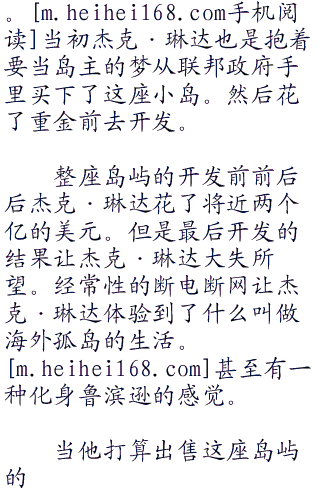 。[m.heihei168.com手机阅
读]当初杰克·琳达也是抱着
要当岛主的梦从联邦政府手
里买下了这座小岛。然后花
了重金前去开发。
整座岛屿的开发前前后
后杰克·琳达花了将近两个
亿的美元。但是最后开发的
结果让杰克·琳达大失所
望。经常性的断电断网让杰
克·琳达体验到了什么叫做
海外孤岛的生活。
[m.heihei168.com]甚至有一
种化身鲁滨逊的感觉。
当他打算出售这座岛屿
的